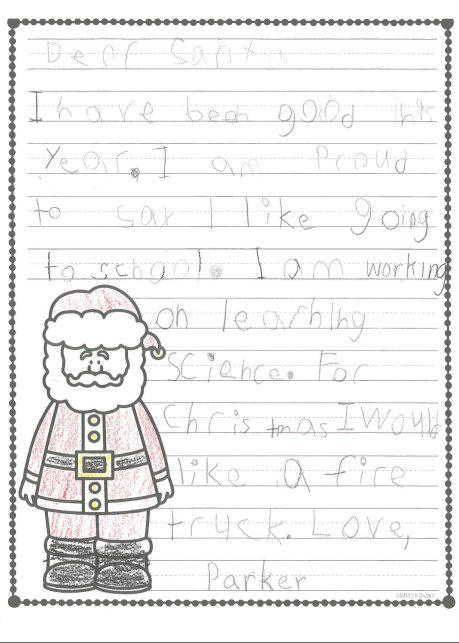 Dear Santa
I have been good this
Year. I am Proud
to say I like going
to school. I am working
on learning
Science. For
Christmas I Would
like a fire
truck. Love,
Parker
SIMPLYkinder